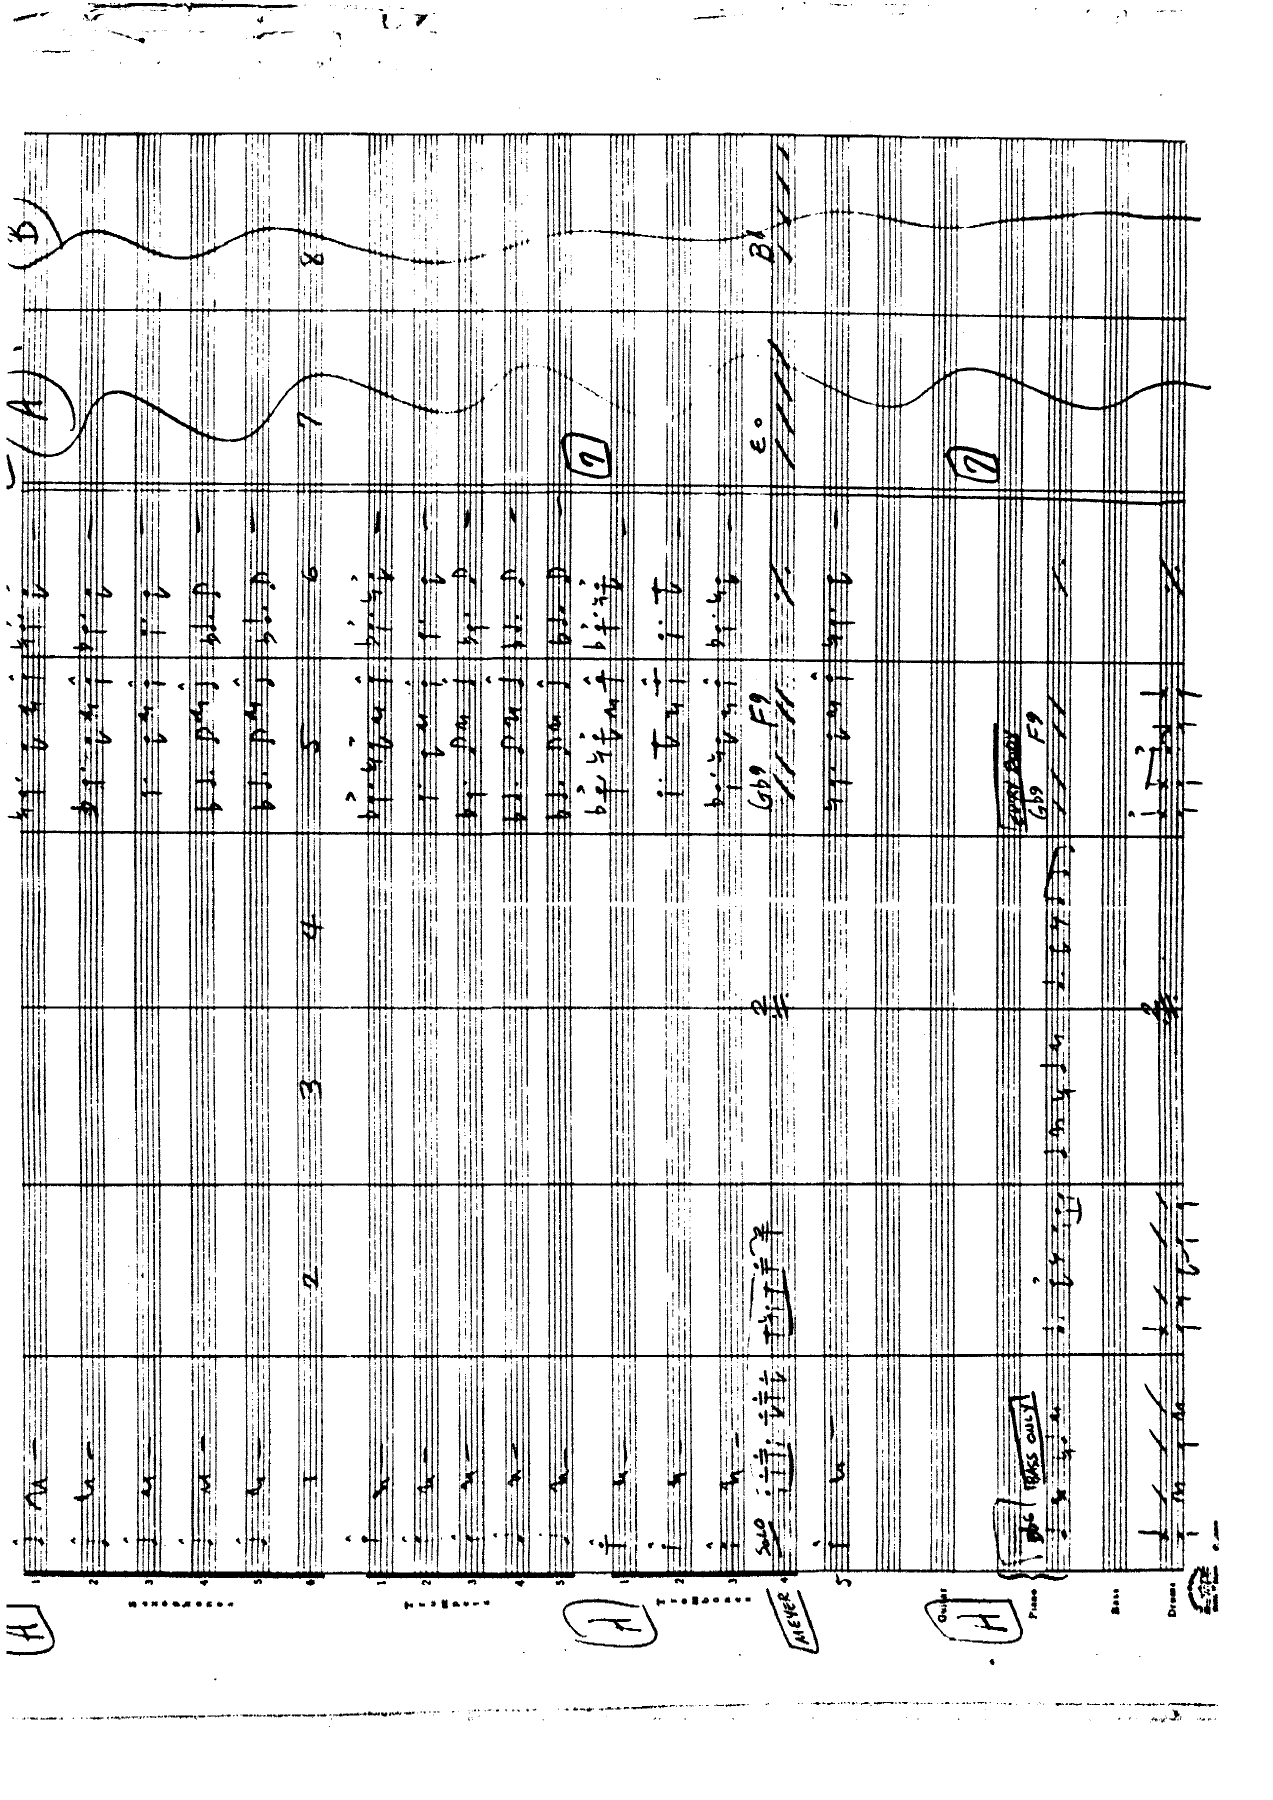 A
D
Saxophones
1
2
3
4
5
6
Trumpets
1
2
3
4
5
A
7
Trombones
1
2
3
4
5
MEYER
SOLO
2
Gb9 F9
1 2 3 4 5 6 7 8
A
7
Guitar
Piano
BASS ONLY
EVERY BODY
Gb9 F9
Bass
Drums
2